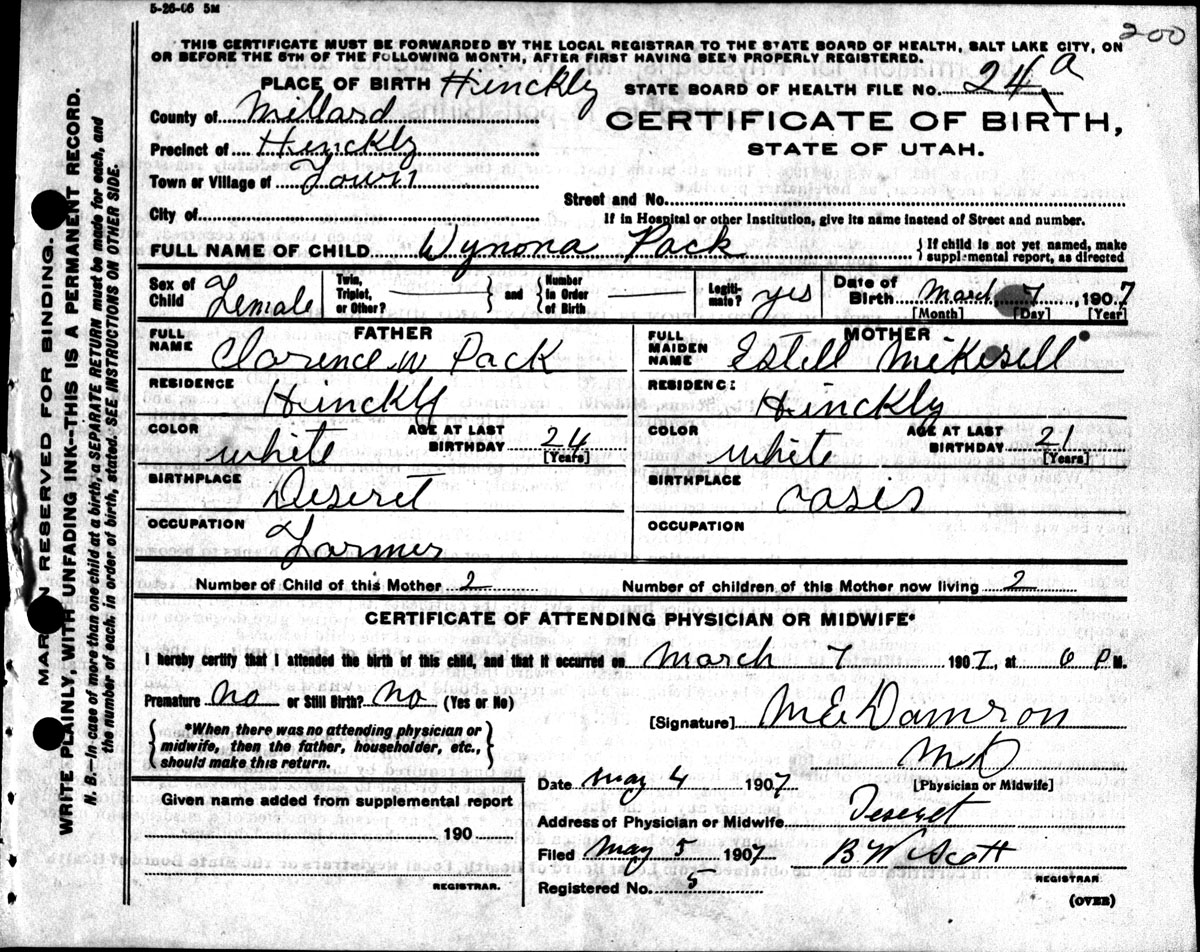 5-26-06 5M
200
THIS CERTIFICATE MUST BE FORWARDED BY THE LOCAL REGISTRAR TO THE STATE BOARD OF HEALTH, SALT LAKE CITY, ON
OR BEFORE THE 5TH OF THE FOLLOWING MONTH, AFTER FIRST HAVING BEEN PROPERLY REGISTERED.
PLACE OF BIRTH Hinckly
STATE BOARD OF HEALTH FILE NO. 24 a
County of Millard
CERTIFICATE OF BIRTH,
Precinct of Hinckly
STATE OF UTAH.
Town or Village of Town
Street and No.
City of
If in Hospital or other Institution, give its name instead of Street and number.
FULL NAME OF CHILD Wynona Pack
{If child is not yet named, make
supplemental report, as directed
Sex of Child Female
Twin, Triplet, or Other? } and { Number in Order of Birth
Legitimate? yes
Date of Birth March 7, 1907
[Month] [Day] [Year]
FATHER
FULL NAME Clarence W Pack
MOTHER
FULL MAIDEN NAME Estell Mikesell
RESIDENCE Hinckly
RESIDENCE Hinckly
COLOR white AGE AT LAST BIRTHDAY 24 [Years]
COLOR white AGE AT LAST BIRTHDAY 21 [Years]
BIRTHPLACE Deseret
BIRTHPLACE oasis
OCCUPATION Farmer
OCCUPATION
Number of Child of this Mother 2
Number of children of this Mother now living 2
CERTIFICATE OF ATTENDING PHYSICIAN OR MIDWIFE*
I hereby certify that I attended the birth of this child, and that it occurred on March 7 1907, at 6 P M.
Premature no or Still Birth? no (Yes or No)
{ *When there was no attending physician or
midwife, then the father, householder, etc.,
should make this return. }
[Signature] M E Damron
M D
[Physician or Midwife]
Date May 4 1907
Given name added from supplemental report
190
REGISTRAR.
Address of Physician or Midwife Deseret
Filed May 5 1907 B W Scott
REGISTRAR
Registered No. 5
(OVER)
MARGIN RESERVED FOR BINDING.
WRITE PLAINLY, WITH UNFADING INK---THIS IS A PERMANENT RECORD.
N. B.—In case of more than one child at a birth, a SEPARATE RETURN must be made for each, and
the number of each, in order of birth, stated. SEE INSTRUCTIONS ON OTHER SIDE.